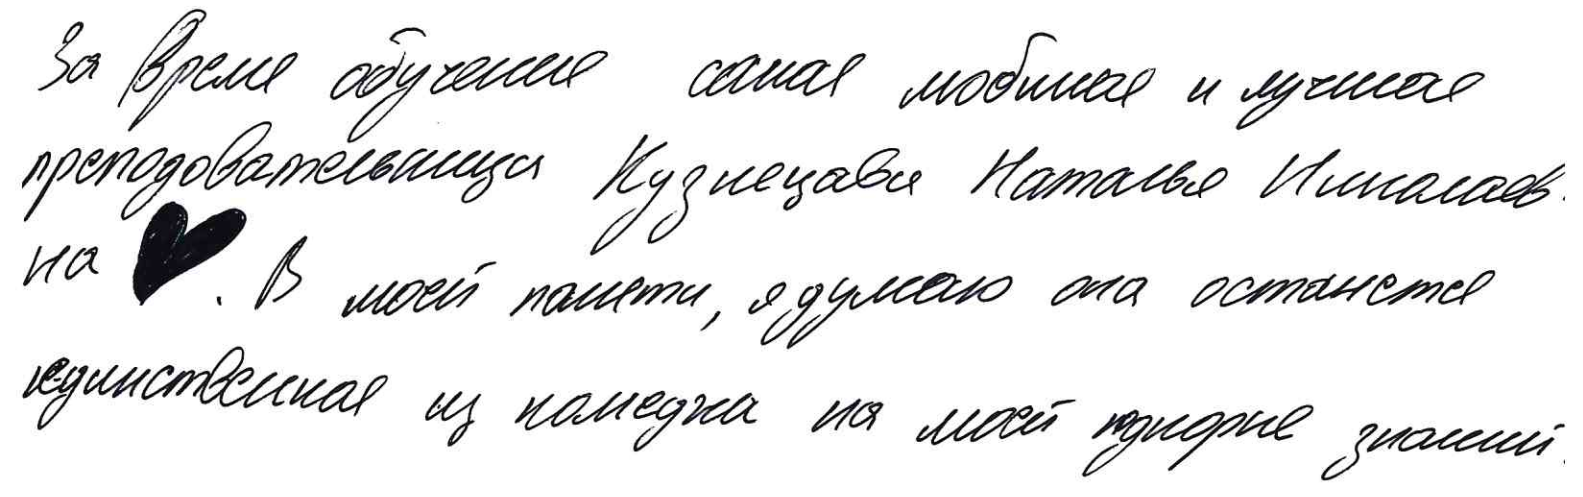 За время обучения самая любимая и лучшая
преподовательница Кузнецава Наталья Николаев-
на ♥. В моей памяти, я думаю она останется
единственная из колледжа на моей знаний.